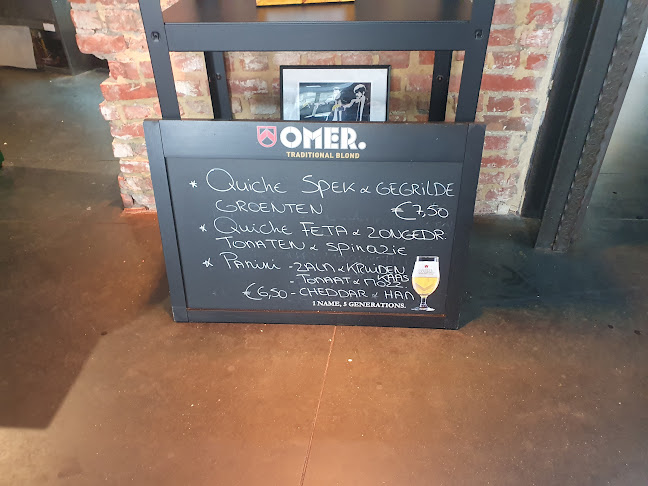 OMER.
TRADITIONAL BLOND
* QUICHE SPEK & GEGRILDE
GROENTEN €7,50
* QUICHE FETA & ZONGEDR.
TOMATEN & SPINAZIE
* PANINI - ZALM & KRUIDEN
KAAS
- TOMAAT & MOZZ
€6,50 - CHEDDAR & HAM
1 NAME, 5 GENERATIONS.